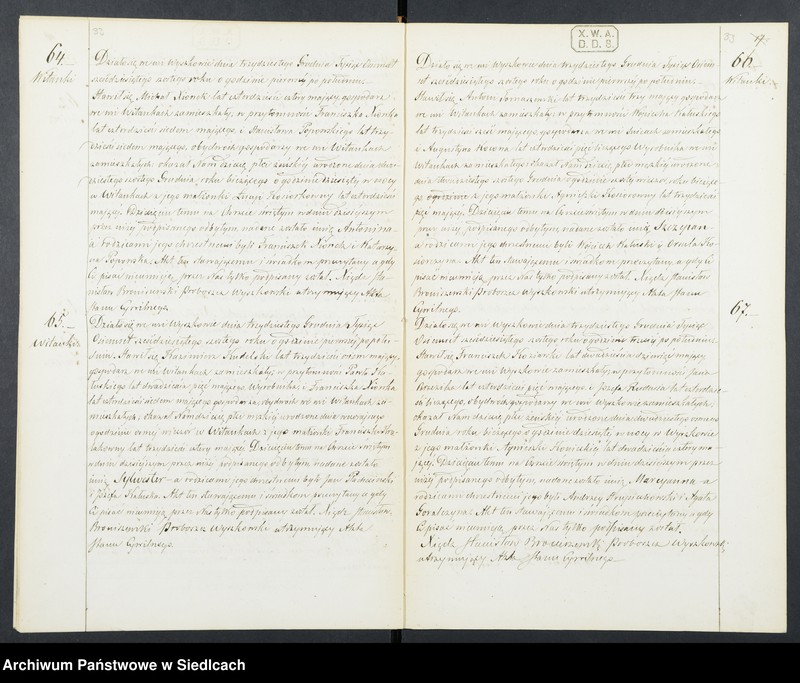 64.
Witanki
Działo się we wsi Wyszkowie dnia trzydziestego Grudnia Tysiąc Ośmset
sześćdziesiątego szóstego roku o godzinie pierwszej po południu.
Stawił się Michał Nionek lat czterdzieści cztery mający gospodarz
we wsi Witankach zamieszkały, w przytomności Franciszka Nionka
lat czterdzieści siedem mającego, i Stanisława Poporskiego lat trzy-
dzieści siedem mającego, obydwóch gospodarzy we wsi Witankach
zamieszkałych; okazał Nam dziecię płci żeńskiej urodzone dnia dwu-
dziestego szóstego Grudnia, roku bieżącego o godzinie dziesiątej w nocy
w Witankach z jego małżonki Lucyi lat czterdzieści
mającej. Dziecięciu temu na Chrzcie świętym w dniu dzisiejszym
przez niżej podpisanego odbytym nadane zostało imię Antonina
a rodzicami jego chrzestnemi byli Franciszek Nionek i Katarzy-
na Poporska. Akt ten stawającemu i świadkom przeczytany a gdy
Ci pisać nieumieją, przez Nas tylko podpisany został. Xiądz Sta-
nisław Broniszewski Proboszcz Wyszkowski utrzymujący Akta
Stanu Cywilnego.
65.
Witanki
Działo się we wsi Wyszkowie dnia trzydziestego Grudnia Tysiąc
Ośmset sześćdziesiątego szóstego roku o godzinie pierwszej po połu-
dniu. Stawił się Kazimierz Rudelski lat trzydzieści ośm mający,
gospodarz we wsi Witankach zamieszkały, w przytomności Pawła
lat dwadzieścia pięć mającego Wyrobnika, i Franciszka Nionka
lat czterdzieści siedem mającego gospodarza, obydwóch we wsi Witankach za-
mieszkałych; okazał Nam dziecię płci męzkiej urodzone dnia wczorajszego
o godzinie ósmej wieczór w Witankach z jego małżonki Franciszki
lat trzydzieści cztery mającej. Dziecięciu temu na Chrzcie świętym
w dniu dzisiejszym przez niżej podpisanego odbytym nadane zostało
imię Sylwester a rodzicami jego chrzestnemi byli Jan
i Józefa Kaluska. Akt ten stawającemu i świadkom przeczytany a gdy
Ci pisać nieumieją przez Nas tylko podpisany został. Xiądz Stanisław
Broniszewski Proboszcz Wyszkowski utrzymujący Akta
Stanu Cywilnego.
X.W.A.
D.D.8.
66.
Witanki
Działo się we wsi Wyszkowie dnia trzydziestego Grudnia Tysiąc Ośm-
set sześćdziesiątego szóstego roku o godzinie pierwszej po południu.
Stawił się Antoni lat trzydzieści trzy mający gospodarz
we wsi Witankach zamieszkały, w przytomności Wojciecha Kaluskiego
lat trzydzieści sześć mającego gospodarza we wsi zamieszkałego
i Augustyna lat czterdzieści pięć liczącego Wyrobnika we wsi
Witankach zamieszkałego; okazał Nam dziecię płci męzkiej urodzone
dnia Grudnia o godzinie szóstej roku bieżące-
go z jego małżonki Agnieszki lat trzydzieści
pięć mającej. Dziecięciu temu na Chrzcie świętym w dniu dzisiejszym
przez niżej podpisanego odbytym, nadane zostało imię Szczepan
a rodzicami jego chrzestnemi byli Wojciech Kaluski i
Akt ten stawającemu i świadkom przeczytany, a gdy Ci
pisać nieumieją przez Nas tylko podpisany został. Xiądz Stanisław
Broniszewski Proboszcz Wyszkowski utrzymujący Akta Stanu
Cywilnego.
67.
Działo się we wsi Wyszkowie dnia trzydziestego Grudnia Tysiąc
Ośmset sześćdziesiątego szóstego roku o godzinie trzeciej po południu
Stawił się Franciszek lat dwadzieścia dziewięć mający
gospodarz we wsi Wyszkowie zamieszkały, w przytomności Jana
lat czterdzieści pięć mającego i Józefa lat czterdzie-
ści liczącego, obydwóch gospodarzy we wsi Wyszkowie zamieszkałych,
okazał Nam dziecię płci żeńskiej urodzone dnia dwudziestego ósmego
Grudnia roku bieżącego o godzinie dziesiątej w nocy w Wyszkowie
z jego małżonki Agnieszki lat dwadzieścia cztery ma-
jącej. Dziecięciu temu na Chrzcie świętym w dniu dzisiejszym przez
niżej podpisanego odbytym, nadane zostało imię Maryanna a
rodzicami chrzestnemi jego byli Andrzej i Agata
Akt ten stawającemu i świadkom przeczytany a gdy
Ci pisać nieumieją przez Nas tylko podpisany został.
Xiądz Stanisław Broniszewski Proboszcz Wyszkowski
utrzymujący Akta Stanu Cywilnego.
Archiwum Państwowe w Siedlcach